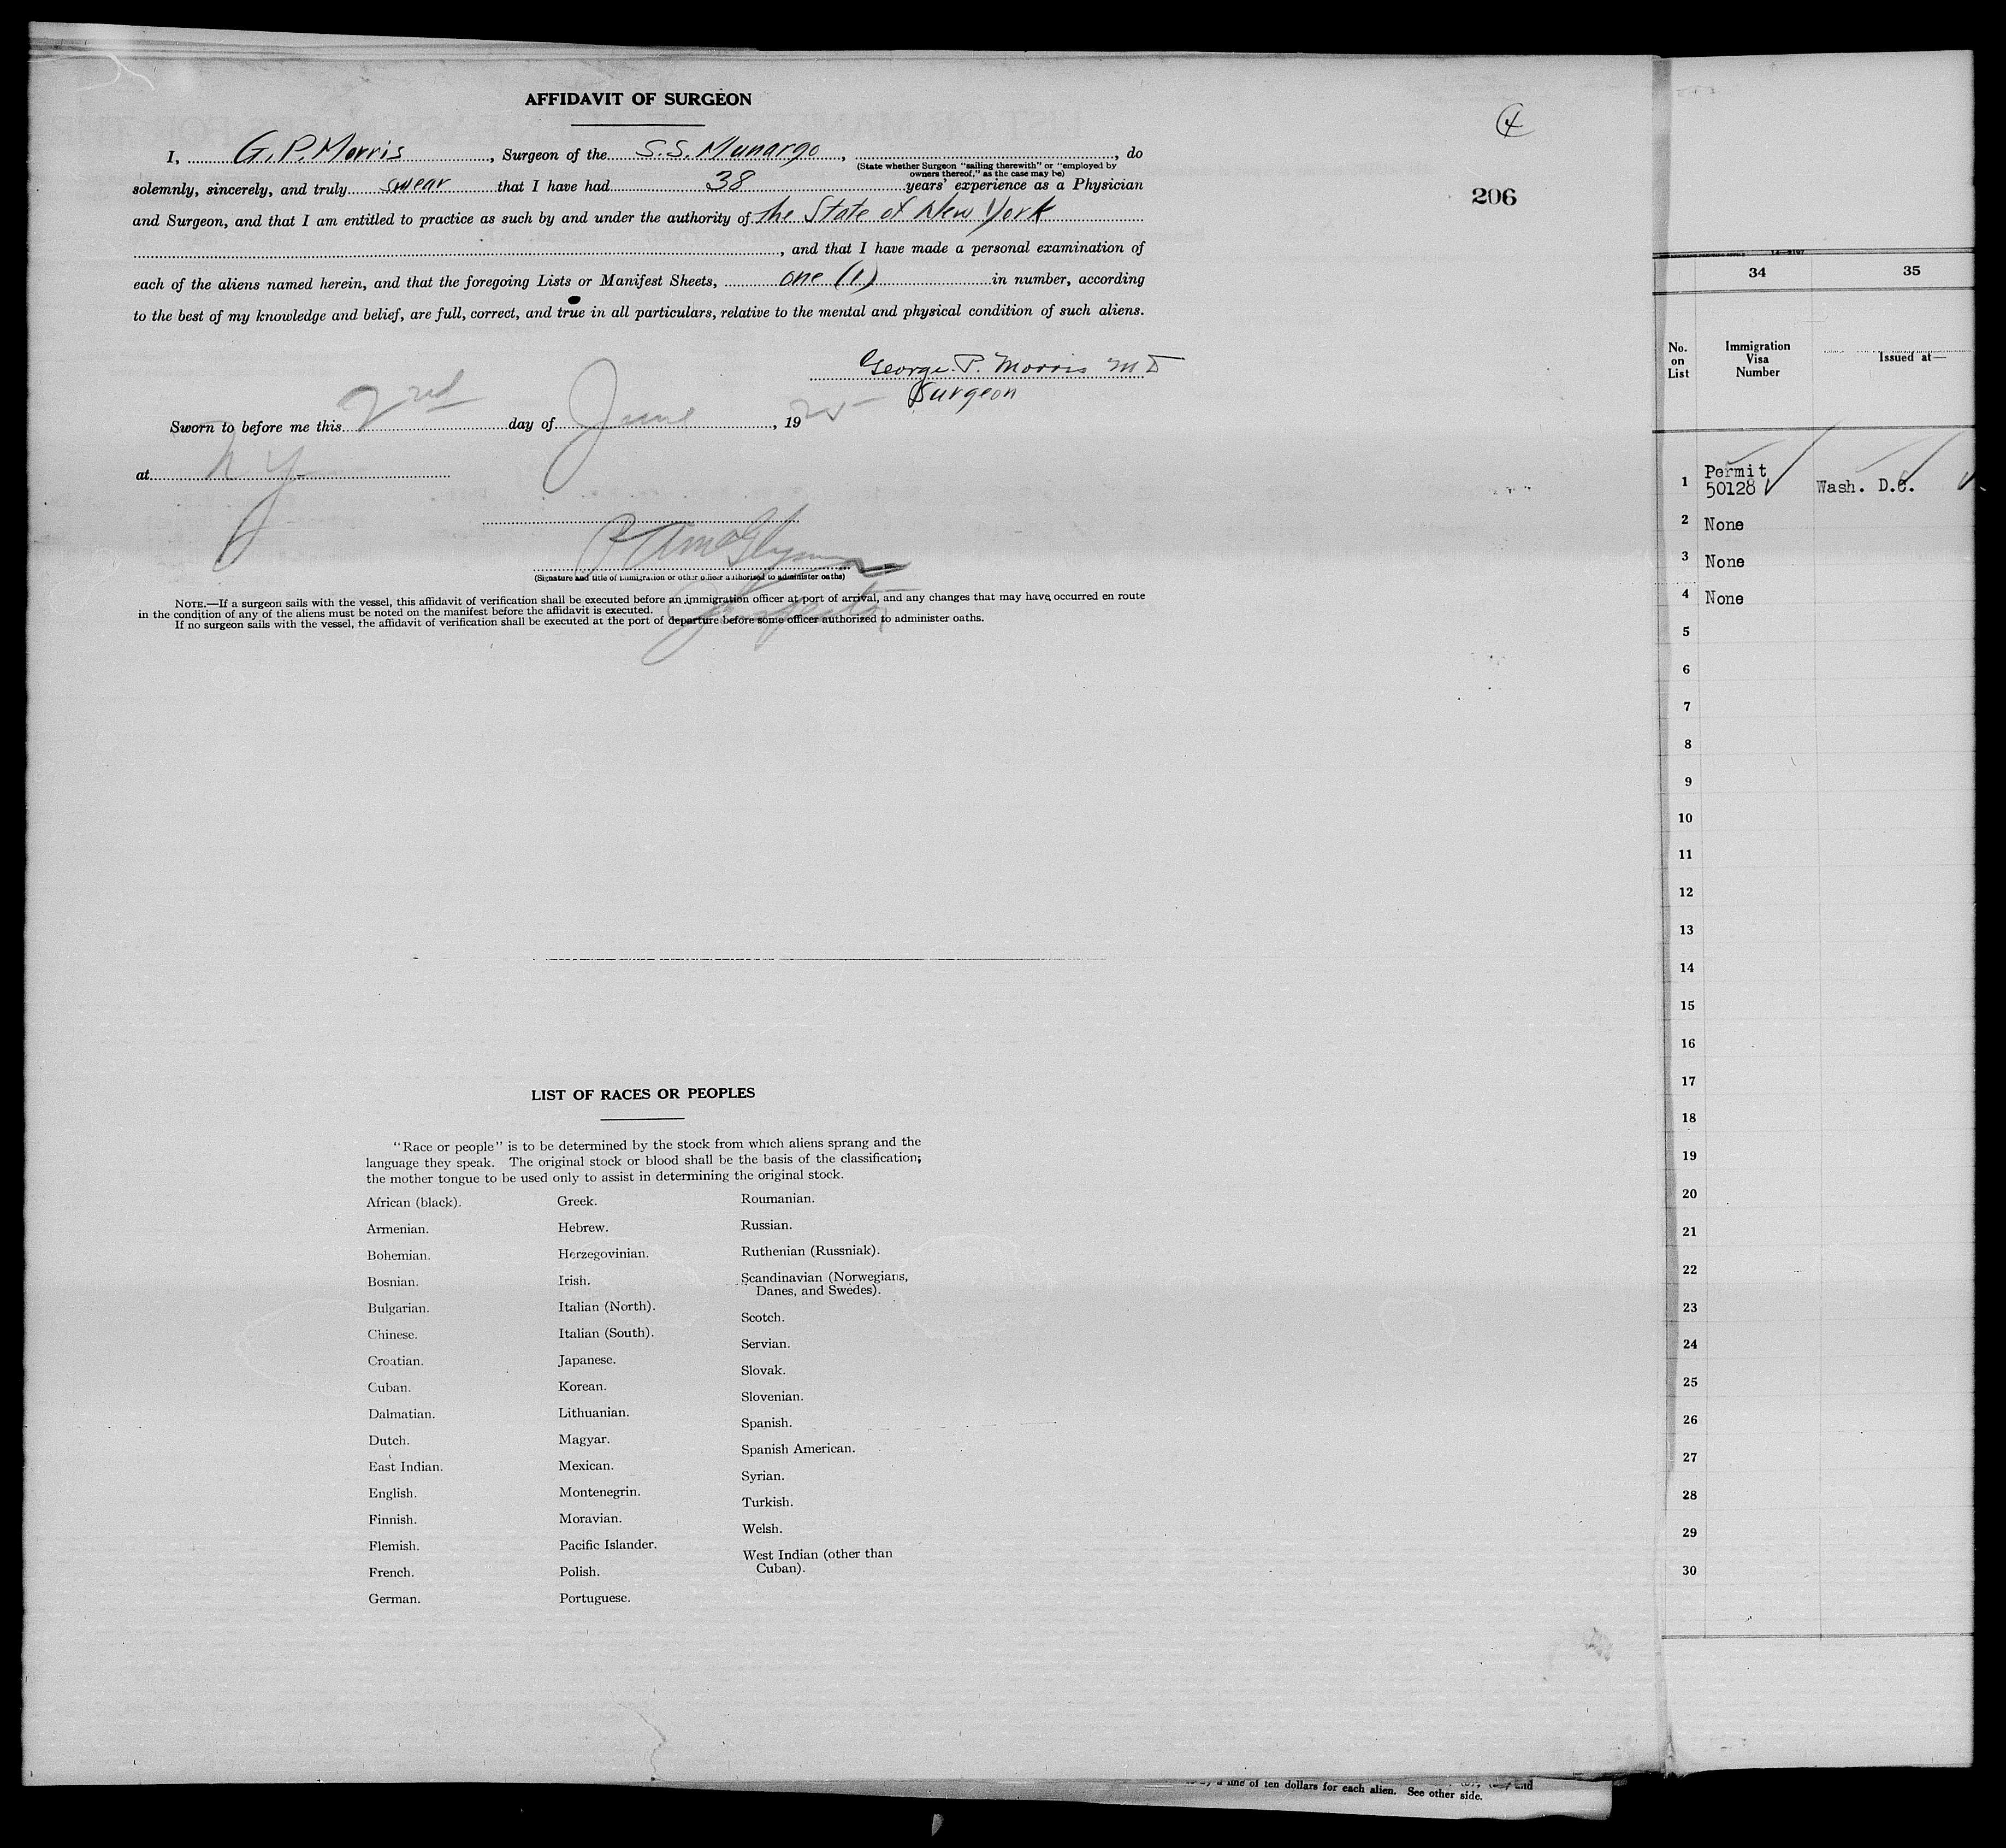 AFFIDAVIT OF SURGEON
4
206
I, G. P. Morris, Surgeon of the S.S. Munargo, , do
(State whether Surgeon "sailing therewith" or "employed by
owners thereof," as the case may be)
solemnly, sincerely, and truly swear that I have had 38 years' experience as a Physician
and Surgeon, and that I am entitled to practice as such by and under the authority of the State of New York
, and that I have made a personal examination of
each of the aliens named herein, and that the foregoing Lists or Manifest Sheets, one (1) in number, according
to the best of my knowledge and belief, are full, correct, and true in all particulars, relative to the mental and physical condition of such aliens.
George P. Morris MD
Surgeon
Sworn to before me this 2nd day of June, 1925
at N Y
(Signature and title of immigration or other officer authorized to administer oaths)
Inspector
NOTE.—If a surgeon sails with the vessel, this affidavit of verification shall be executed before an immigration officer at port of arrival, and any changes that may have occurred en route
in the condition of any of the aliens must be noted on the manifest before the affidavit is executed.
If no surgeon sails with the vessel, the affidavit of verification shall be executed at the port of departure before some officer authorized to administer oaths.
LIST OF RACES OR PEOPLES
"Race or people" is to be determined by the stock from which aliens sprang and the
language they speak. The original stock or blood shall be the basis of the classification;
the mother tongue to be used only to assist in determining the original stock.
African (black).
Armenian.
Bohemian.
Bosnian.
Bulgarian.
Chinese.
Croatian.
Cuban.
Dalmatian.
Dutch.
East Indian.
English.
Finnish.
Flemish.
French.
German.
Greek.
Hebrew.
Herzegovinian.
Irish.
Italian (North).
Italian (South).
Japanese.
Korean.
Lithuanian.
Magyar.
Mexican.
Montenegrin.
Moravian.
Pacific Islander.
Polish.
Portuguese.
Roumanian.
Russian.
Ruthenian (Russniak).
Scandinavian (Norwegians,
Danes, and Swedes).
Scotch.
Servian.
Slovak.
Slovenian.
Spanish.
Spanish American.
Syrian.
Turkish.
Welsh.
West Indian (other than
Cuban).
34 35
No.
on
List
Immigration
Visa
Number
Issued at—
1 Permit
50128 Wash. D.C.
2 None
3 None
4 None
5
6
7
8
9
10
11
12
13
14
15
16
17
18
19
20
21
22
23
24
25
26
27
28
29
30
of ten dollars for each alien. See other side.